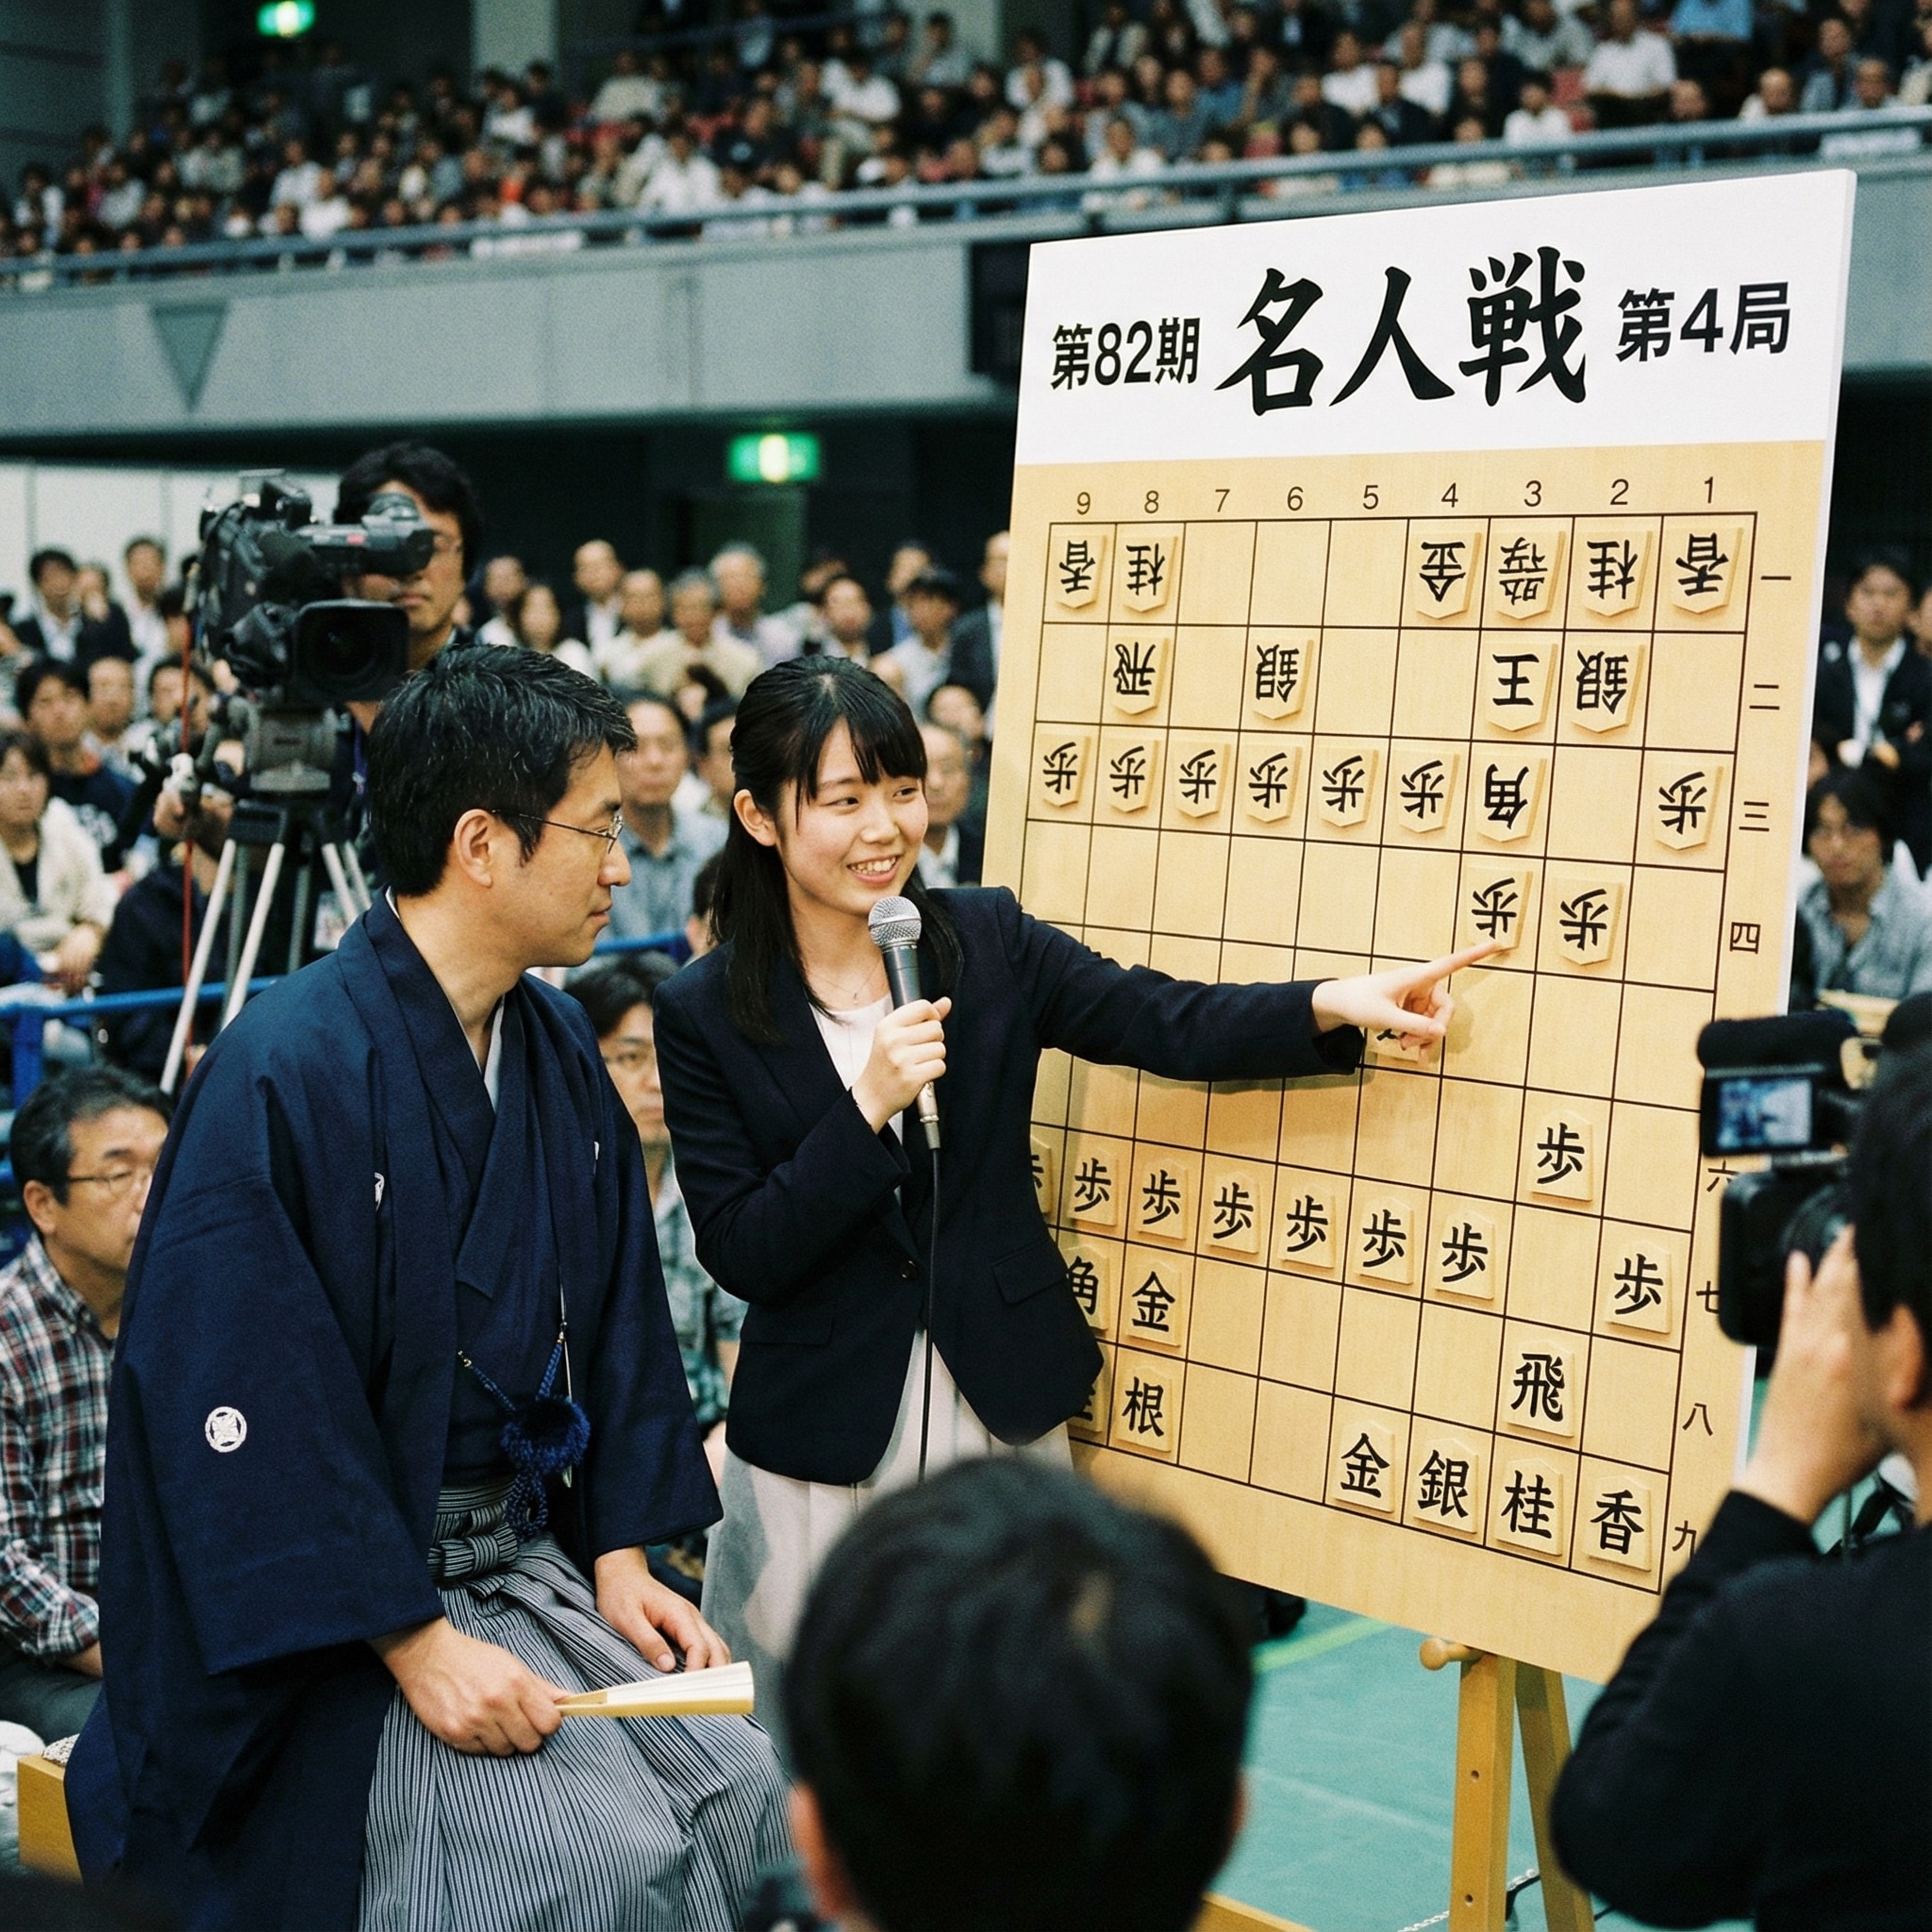 第82期 名人戦 第4局
9 8 7 6 5 4 3 2 1
香 桂 金 桂 香 一
飛 銀 王 銀 二
歩 歩 歩 歩 歩 歩 角 歩 三
歩 歩 四
歩 六
歩 歩 歩 歩 歩 歩
角 金 歩 七
根 飛 八
金 銀 桂 香 九